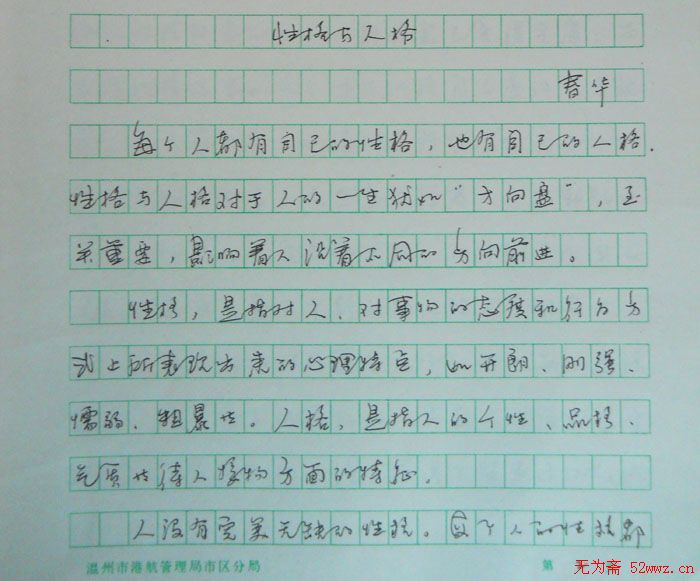 性格与人格
春华
每个人都有自己的性格，也有自己的人格.
性格与人格对于人的一生犹如“方向盘”，至
关重要，影响着人沿着不同的方向前进。
性格，是指对人、对事物的态度和行为方
式上所表现出来的心理特点，如开朗、刚强、
懦弱、粗暴等。人格，是指人的个性、品格、
气质等待人接物方面的特征.
人没有完美无缺的性格。每个人的性格都
温州市港航管理局市区分局 第
无为斋 52wwz.cn